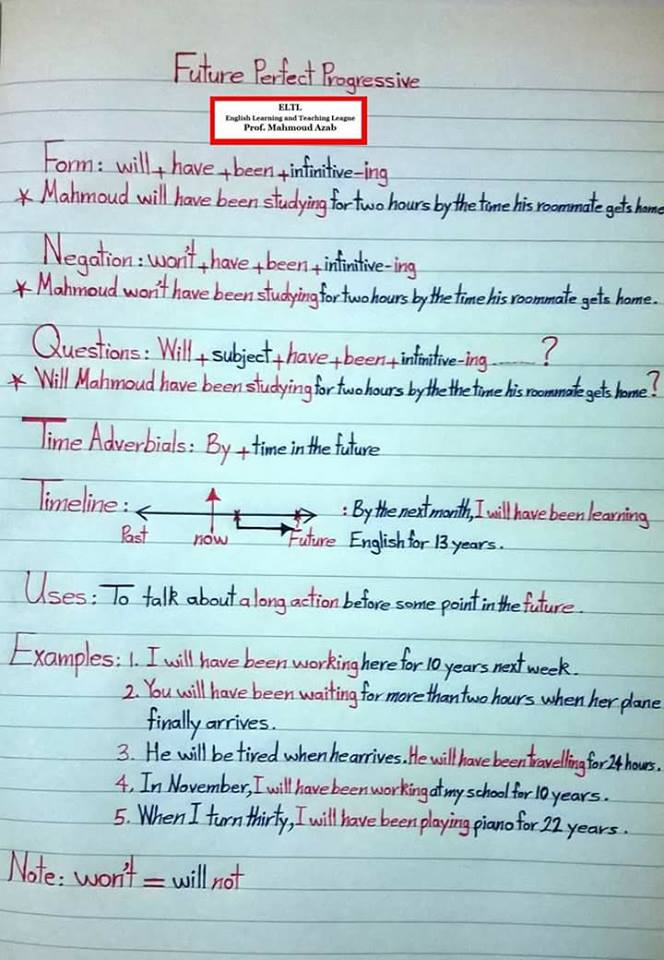 Future Perfect Progressive
ELTL
English Learning and Teaching League
Prof. Mahmoud Azab
Form: will + have + been + infinitive-ing
* Mahmoud will have been studying for two hours by the time his roommate gets home
Negation: won't + have + been + infinitive-ing
* Mahmoud won't have been studying for two hours by the time his roommate gets home.
Questions: Will + subject + have + been + infinitive-ing ........ ?
* Will Mahmoud have been studying for two hours by the the time his roommate gets home?
Time Adverbials: By + time in the future
Timeline: : By the next month, I will have been learning
Past now Future English for 13 years.
Uses: To talk about a long action before some point in the future.
Examples: 1. I will have been working here for 10 years next week.
2. You will have been waiting for more than two hours when her plane
finally arrives.
3. He will be tired when he arrives. He will have been travelling for 24 hours.
4. In November, I will have been working at my school for 10 years.
5. When I turn thirty, I will have been playing piano for 22 years.
Note: won't = will not